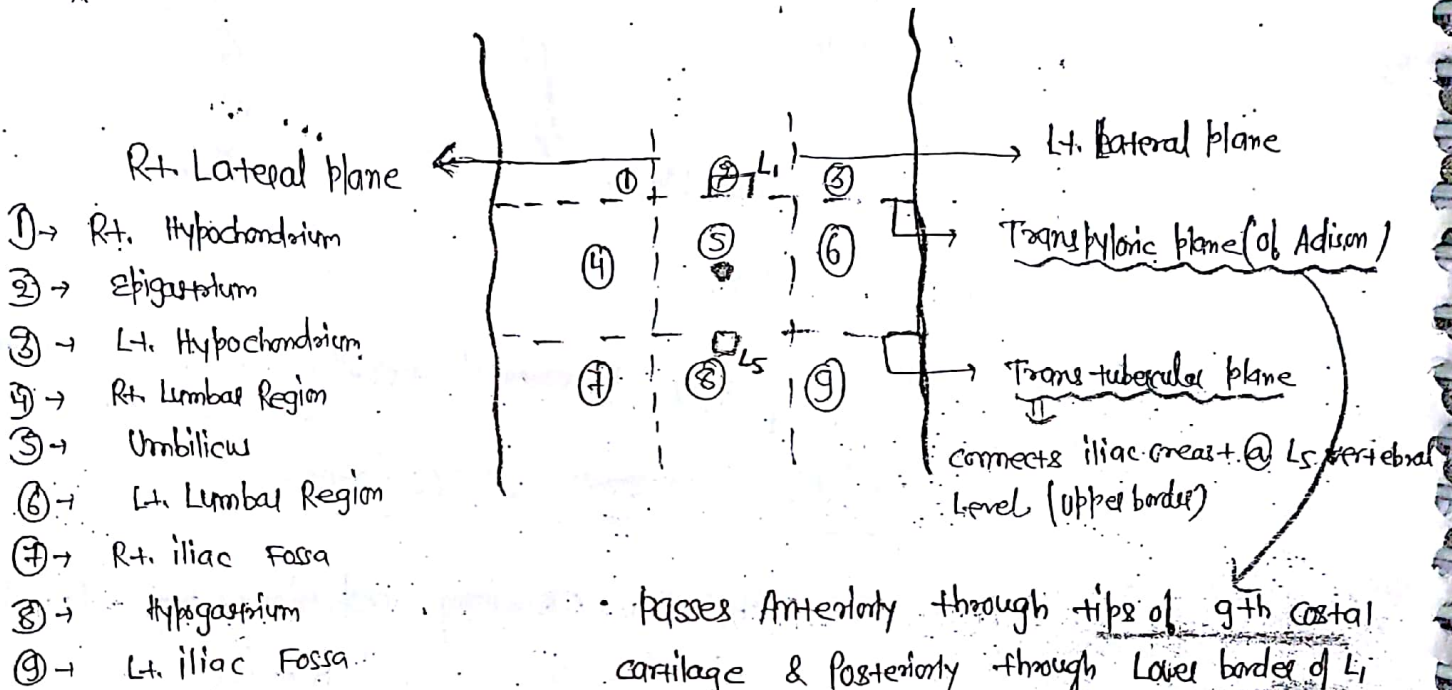 Rt. Lateral plane
① → Rt. Hypochondrium
② → Epigastrium
③ → Lt. Hypochondrium
④ → Rt. Lumbar Region
⑤ → Umbilicus
⑥ → Lt. Lumbar Region
⑦ → Rt. iliac Fossa
⑧ → Hypogastrium
⑨ → Lt. iliac Fossa
① ② L1 ③
④ ⑤ ⑥
L5
⑦ ⑧ ⑨
Lt. Lateral plane
Transpyloric plane (of Adison)
Trans-tubercular plane
connects iliac creast @ L5 vertebral
Level (upper border)
• Passes Anteriorly through tips of 9th costal
cartilage & Posteriorly through Lower border of L1